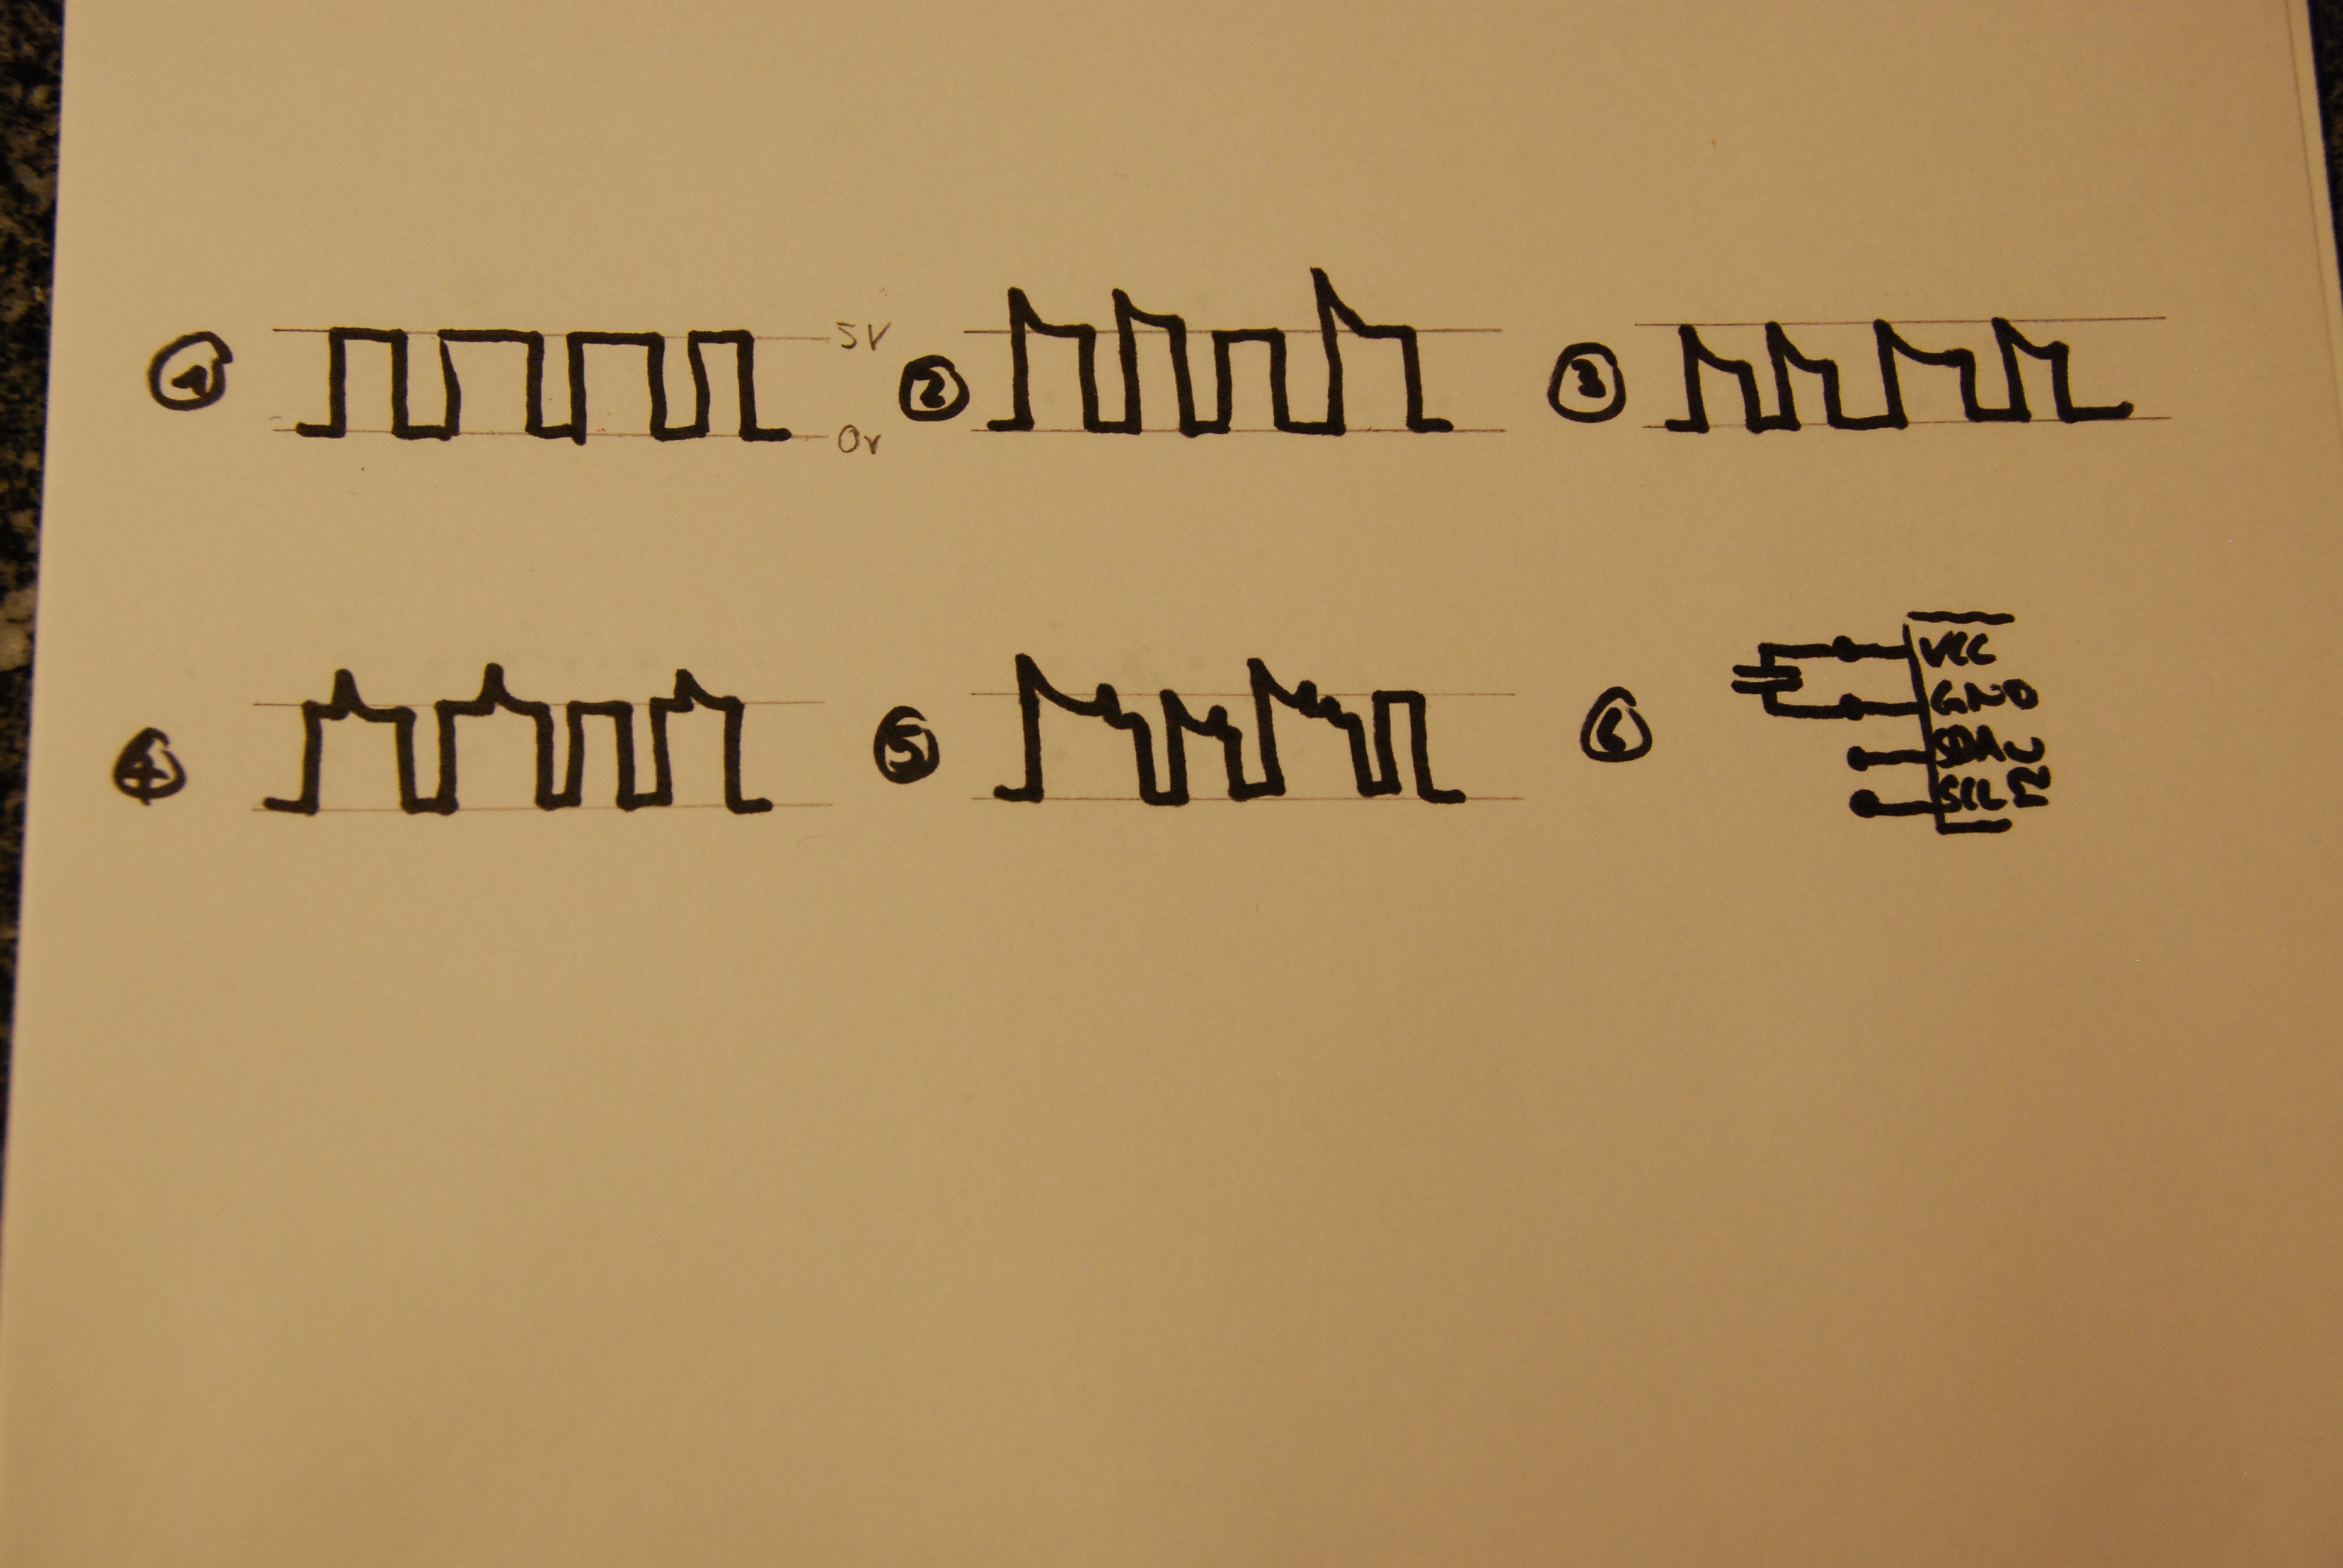 1
5V
0V
2
3
4
5
6
VCC
GND
SDA
SCL